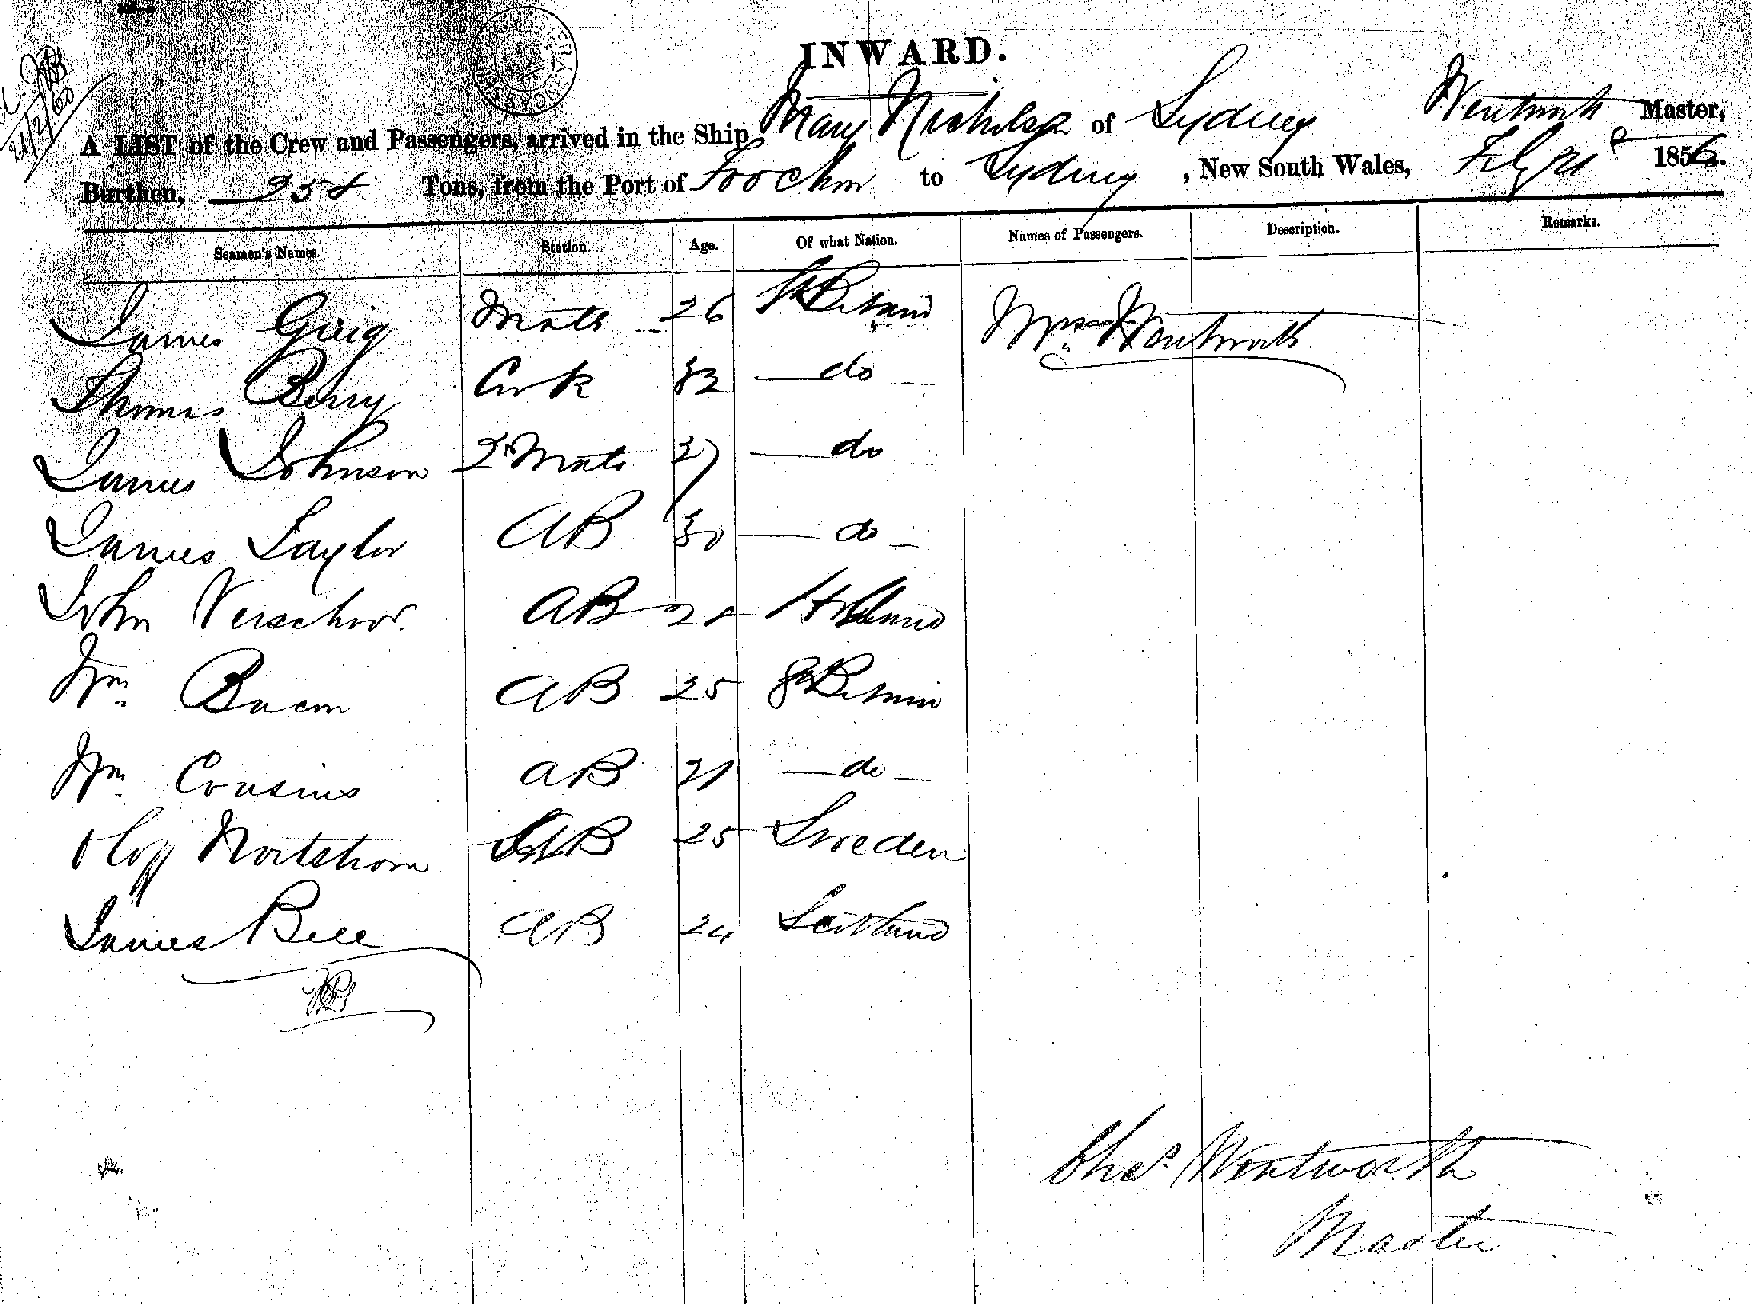 INWARD.
A LIST of the Crew and Passengers, arrived in the Ship Mary Nicholson of Sydney Wentworth Master,
Burthen, Tons, from the Port of Foo Chow to Sydney, New South Wales, Feby 21
Seamen's Names. Station. Age. Of what Nation. Names of Passengers. Description. Remarks.
James Greig Mate 26 Gt Britain Mrs Wentworth
Thomas Berry Cook 32 do
James Johnson 2d Mate 27 do
James Taylor AB 30 do
John Verschoor AB Holland
Wm Bacon AB 25 Gt Britain
Wm Cousins AB 21 do
Olof Nortstrom AB 25 Sweden
James Bell AB 24 Scotland
Chas Wentworth
Master